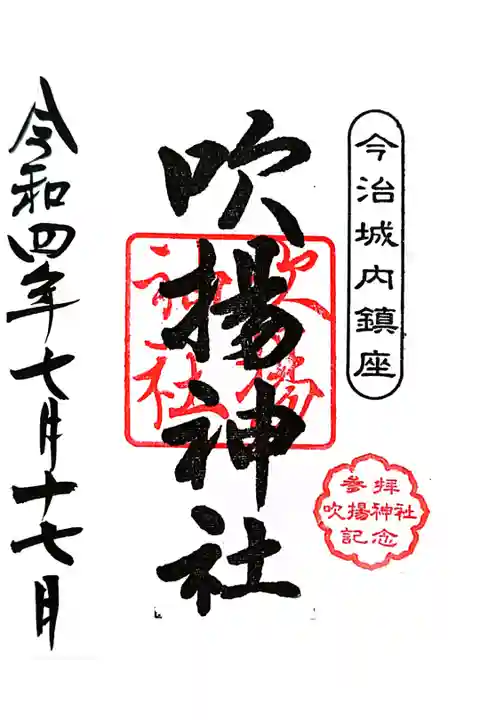 今治城内鎮座
参拝
吹揚神社
記念
吹揚神社
吹揚
神社
令和四年七月十七月